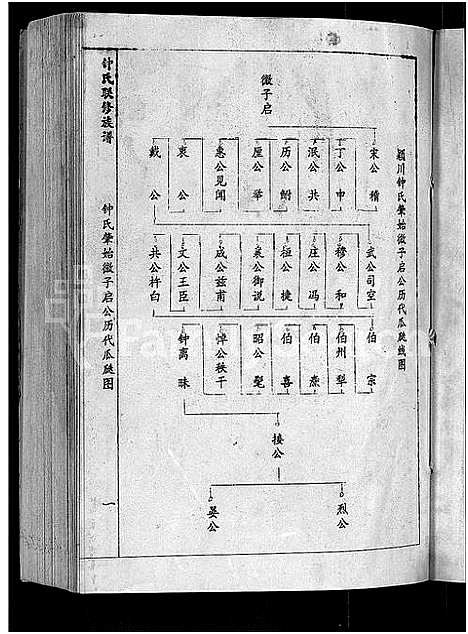 颍川钟氏肇始微子启公历代瓜瓞线图
微子启
宋公稽
丁公申
泯公共
历公鲋
厘公举
惠公见闻
哀公
戴公
武公司空
穆公和
庄公冯
桓公捷
襄公御说
成公兹甫
文公王臣
共公杵臼
伯宗
伯州犁
伯焘
伯喜
昭公髦
悼公秩干
钟离昧
接公
烈公
晏公
钟氏联修族谱
钟氏肇始微子启公历代瓜瓞图
一